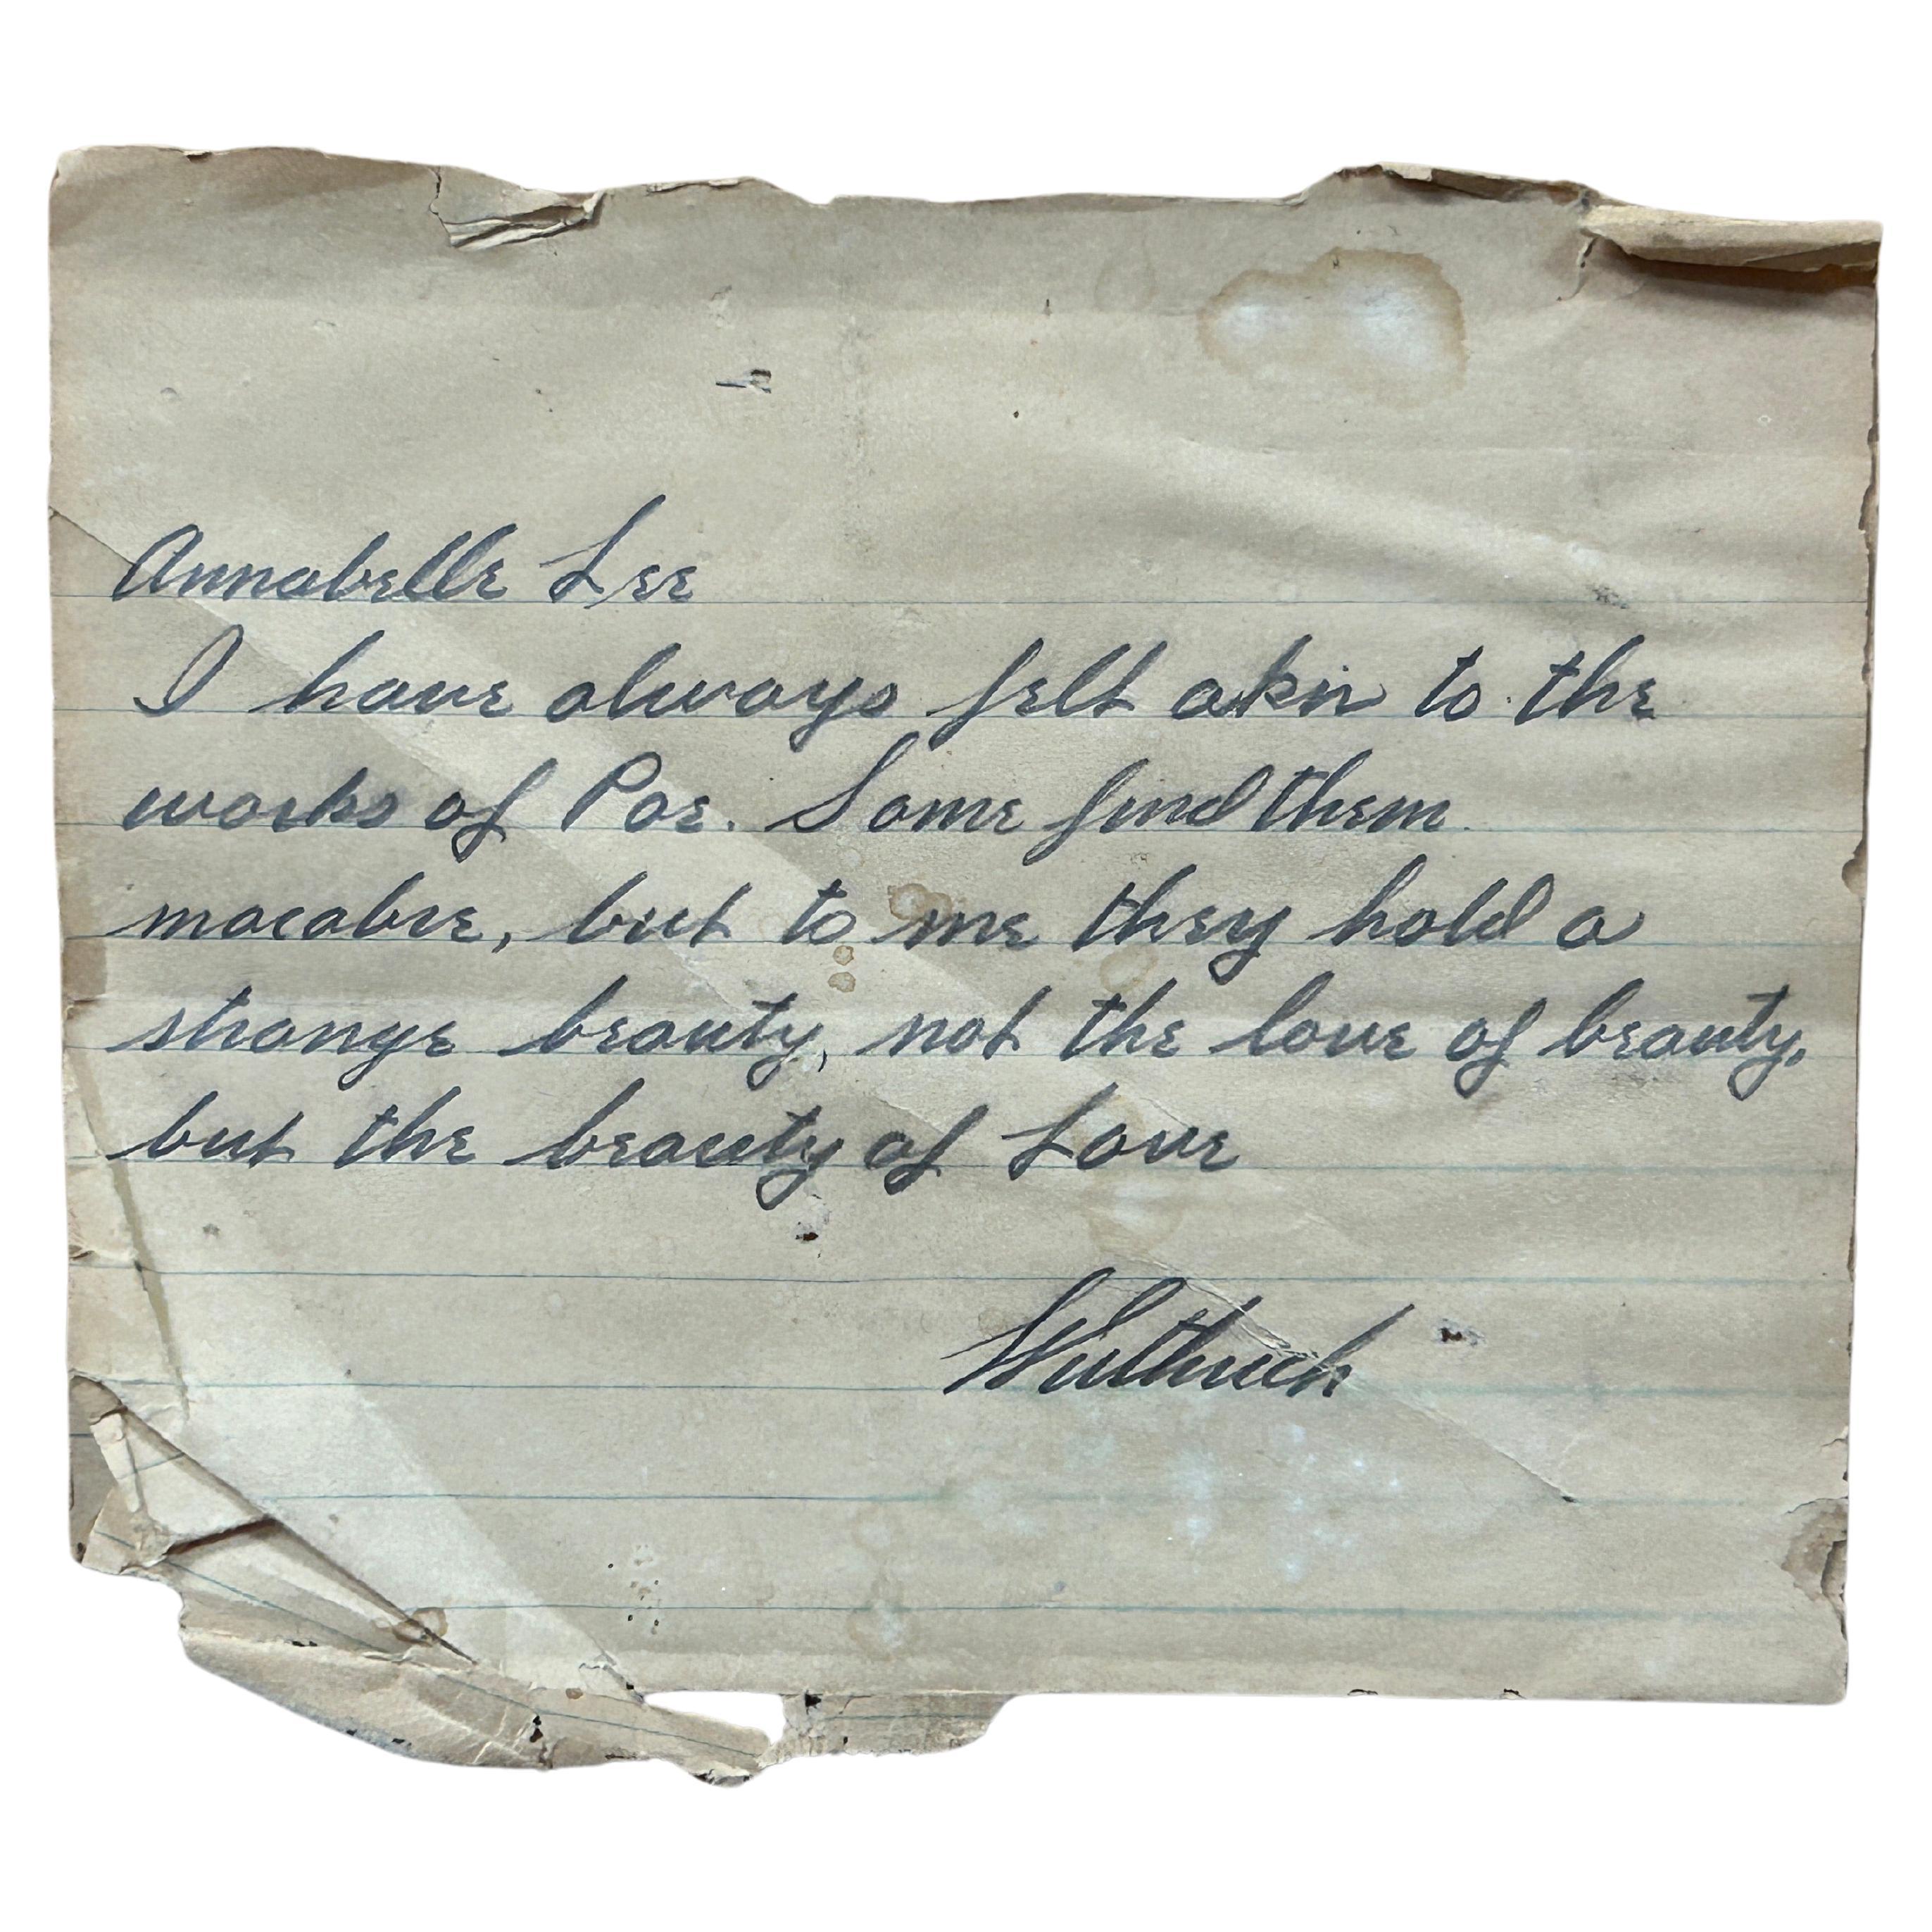 Annabelle Lee
I have always felt akin to the
works of Poe. Some find them
macabre, but to me they hold a
strange beauty, not the love of beauty,
but the beauty of Love
Wuthrich